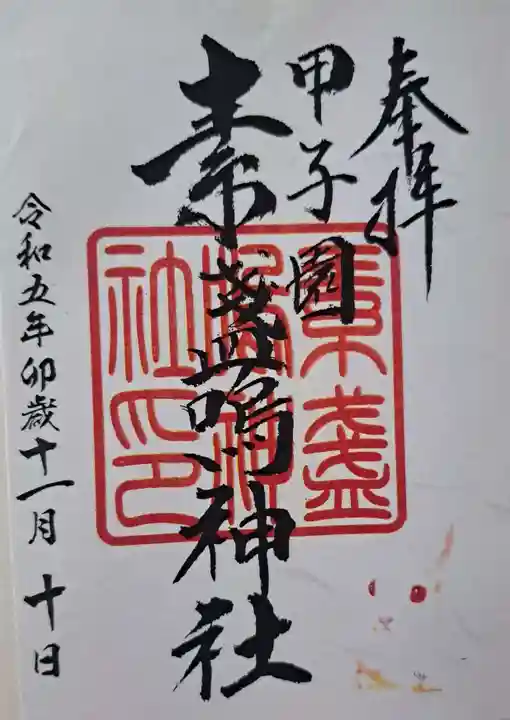 奉拝
甲子園
素盞嗚神社
素盞
嗚神
社印
令和五年卯歳十一月十日